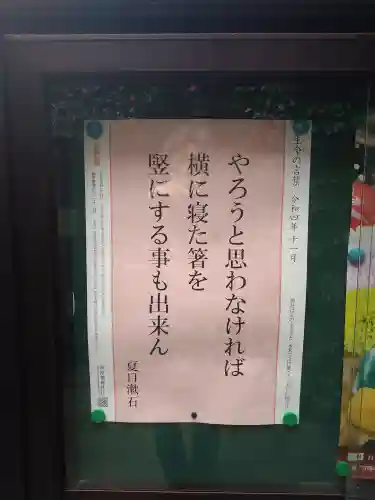 生命の言葉 令和四年 十一月
やろうと思わなければ
横に寝た箸を
竪にする事も出来ん
夏目漱石